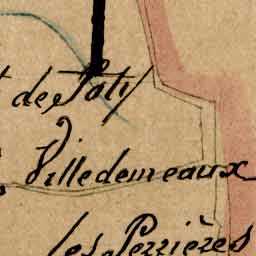 de Paty
Villedemeaux
les Perrières